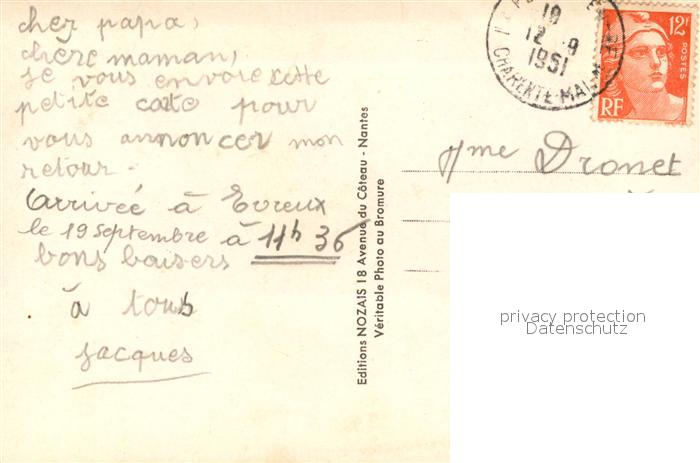 cher papa,
chere maman,
je vous envoie cette
petite carte pour
vous annoncer mon
retour.
Arrivée à Evreux
le 19 septembre à 11h 36
bons baisers
à tous
jacques
Editions NOZAIS 18 Avenue du Côteau - Nantes
Véritable Photo au Bromure
18
12 - 9
1951
CHARENTE-MAR
12F
POSTES
RF
Mme Dronet
privacy protection
Datenschutz